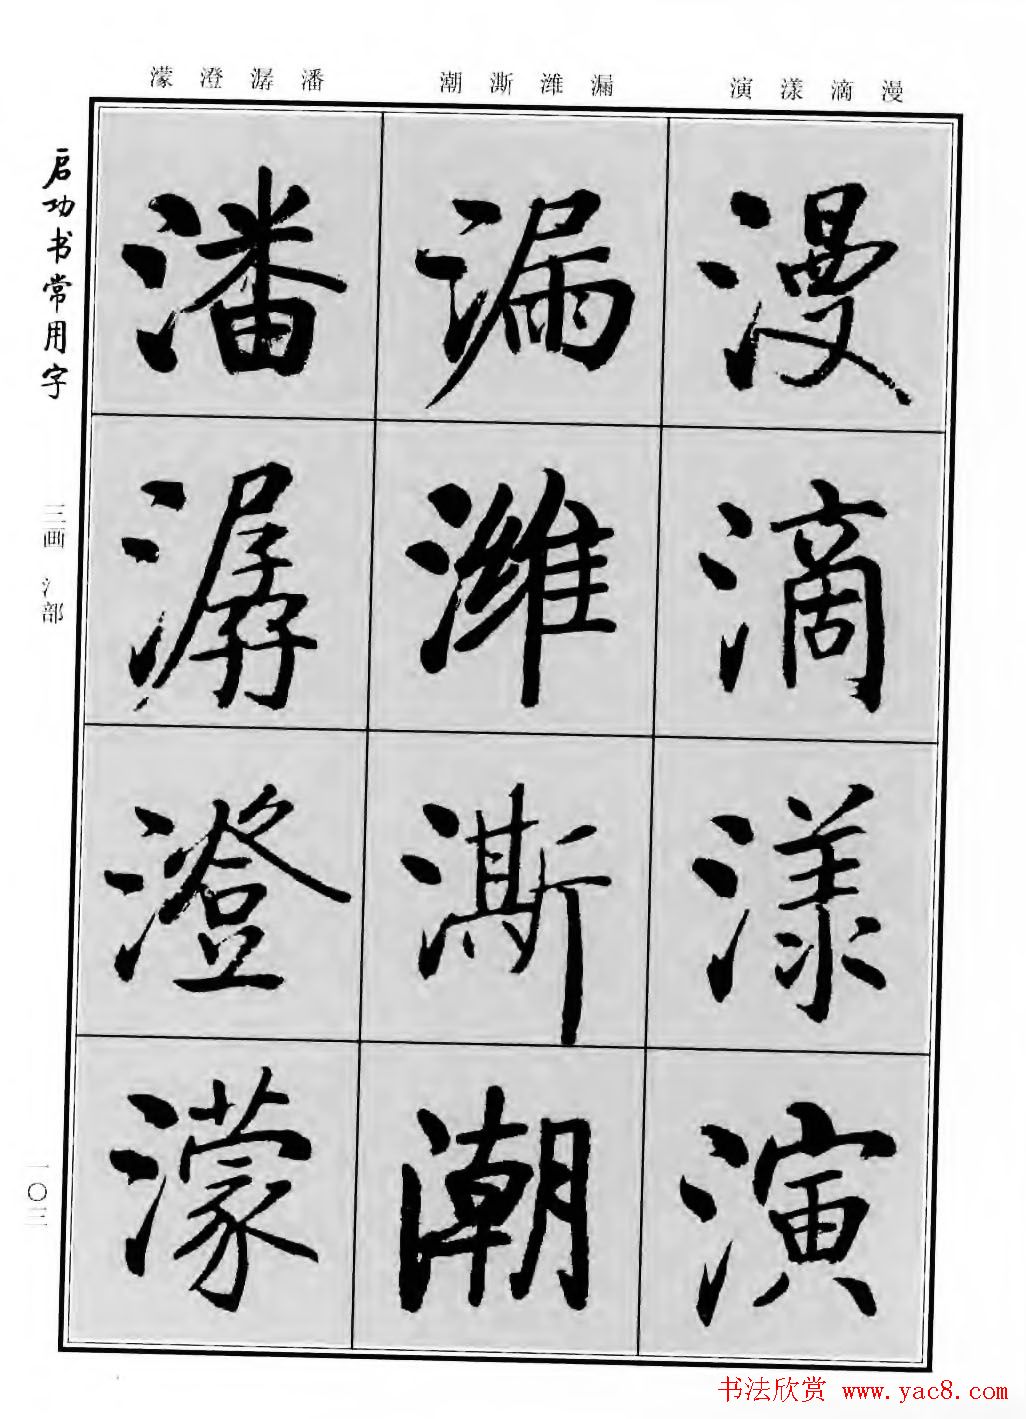 漫滴漾演
漏潍澌潮
潘潺澄濛
漫
滴
漾
演
漏
潍
澌
潮
潘
潺
澄
濛
启功书常用字
三画 氵部
一〇三
书法欣赏 www.yac8.com